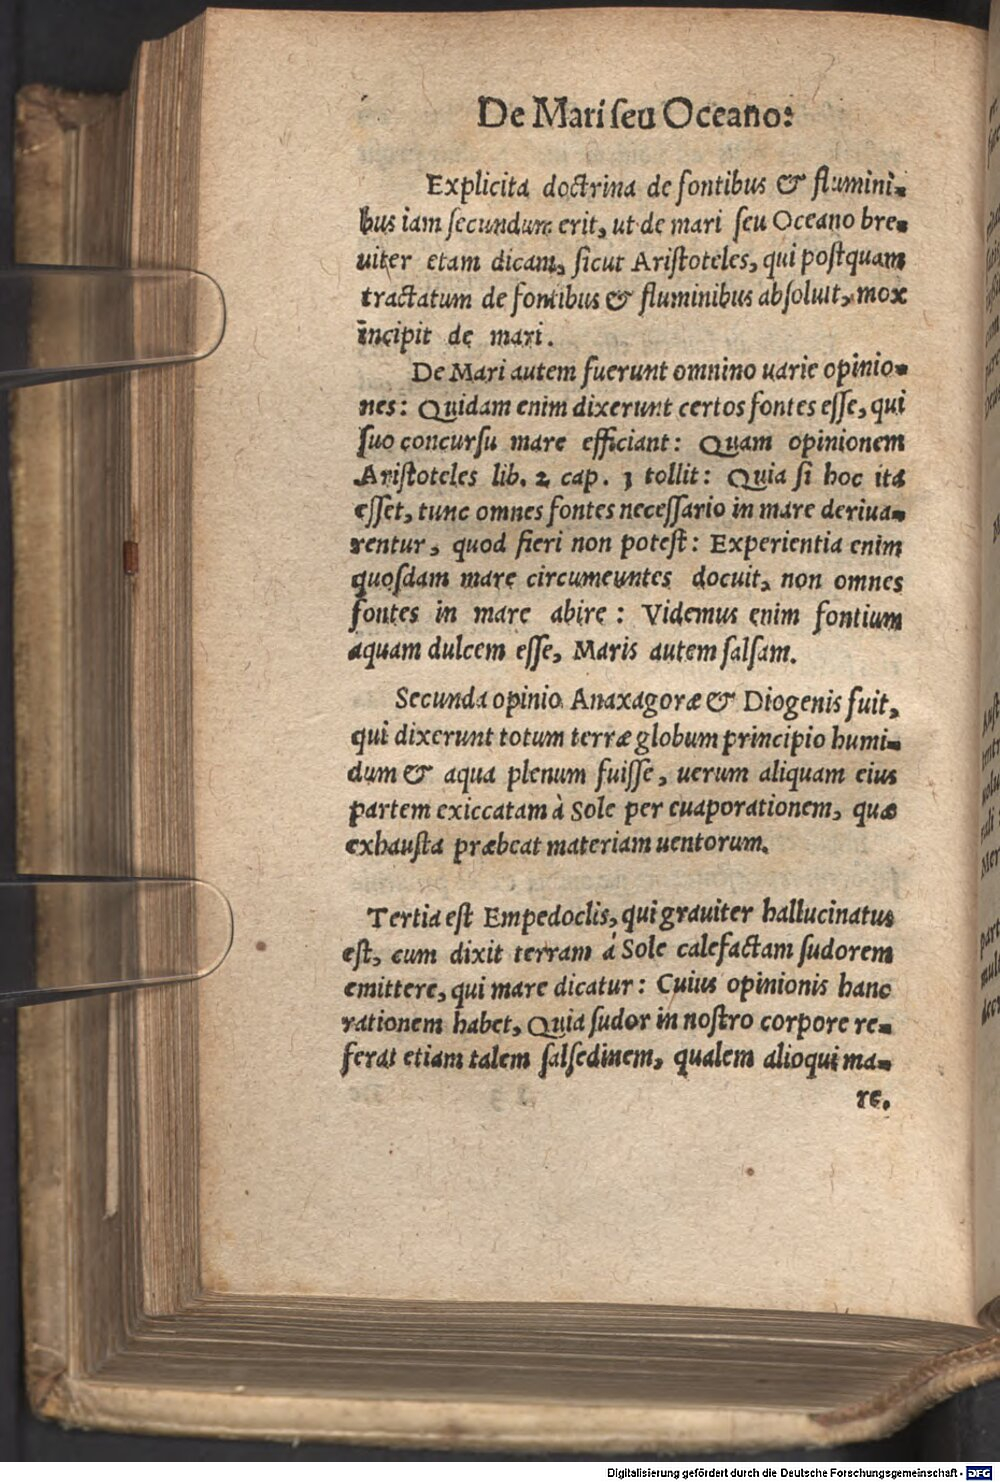 De Mari ſeu Oceano:
Explicita doctrina de fontibus & flumini-
bus iam ſecundum erit, ut de mari ſeu Oceano bre-
uiter etam dicam, ſicut Ariſtoteles, qui poſtquam
tractatum de fontibus & fluminibus abſoluit, mox
incipit de mari.
De Mari autem fuerunt omnino uarie opinio-
nes: Quidam enim dixerunt certos fontes eſſe, qui
ſuo concurſu mare efficiant: Quam opinionem
Ariſtoteles lib. 2 cap. 3 tollit: Quia ſi hoc ita
eſſet, tunc omnes fontes neceſſario in mare deriua-
rentur, quod fieri non poteſt: Experientia enim
quoſdam mare circumeuntes docuit, non omnes
fontes in mare abire: Videmus enim fontium
aquam dulcem eſſe, Maris autem ſalſam.
Secunda opinio Anaxagoræ & Diogenis fuit,
qui dixerunt totum terræ globum principio humi-
dum & aqua plenum fuiſſe, uerum aliquam eius
partem exiccatam à Sole per euaporationem, quæ
exhauſta præbeat materiam uentorum.
Tertia eſt Empedoclis, qui grauiter hallucinatus
eſt, cum dixit terram á Sole calefactam ſudorem
emittere, qui mare dicatur: Cuius opinionis hanc
rationem habet, Quia ſudor in noſtro corpore re-
ferat etiam talem ſalſedinem, qualem alioqui ma-
re.
Digitalisierung gefördert durch die Deutsche Forschungsgemeinschaft - DFG